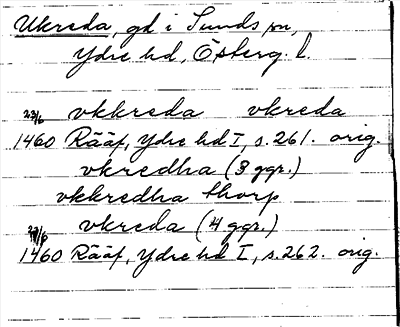 Ukreda, gd i Sunds sn,
Ydre hd, Österg. l.
23/6 vkkreda vkreda
1460 Rääf, Ydre hd I, s. 261. orig.
vkredha (3 ggr.)
vkkredha thorp
vkreda (4 ggr.)
1460 Rääf, Ydre hd I, s. 262. orig.